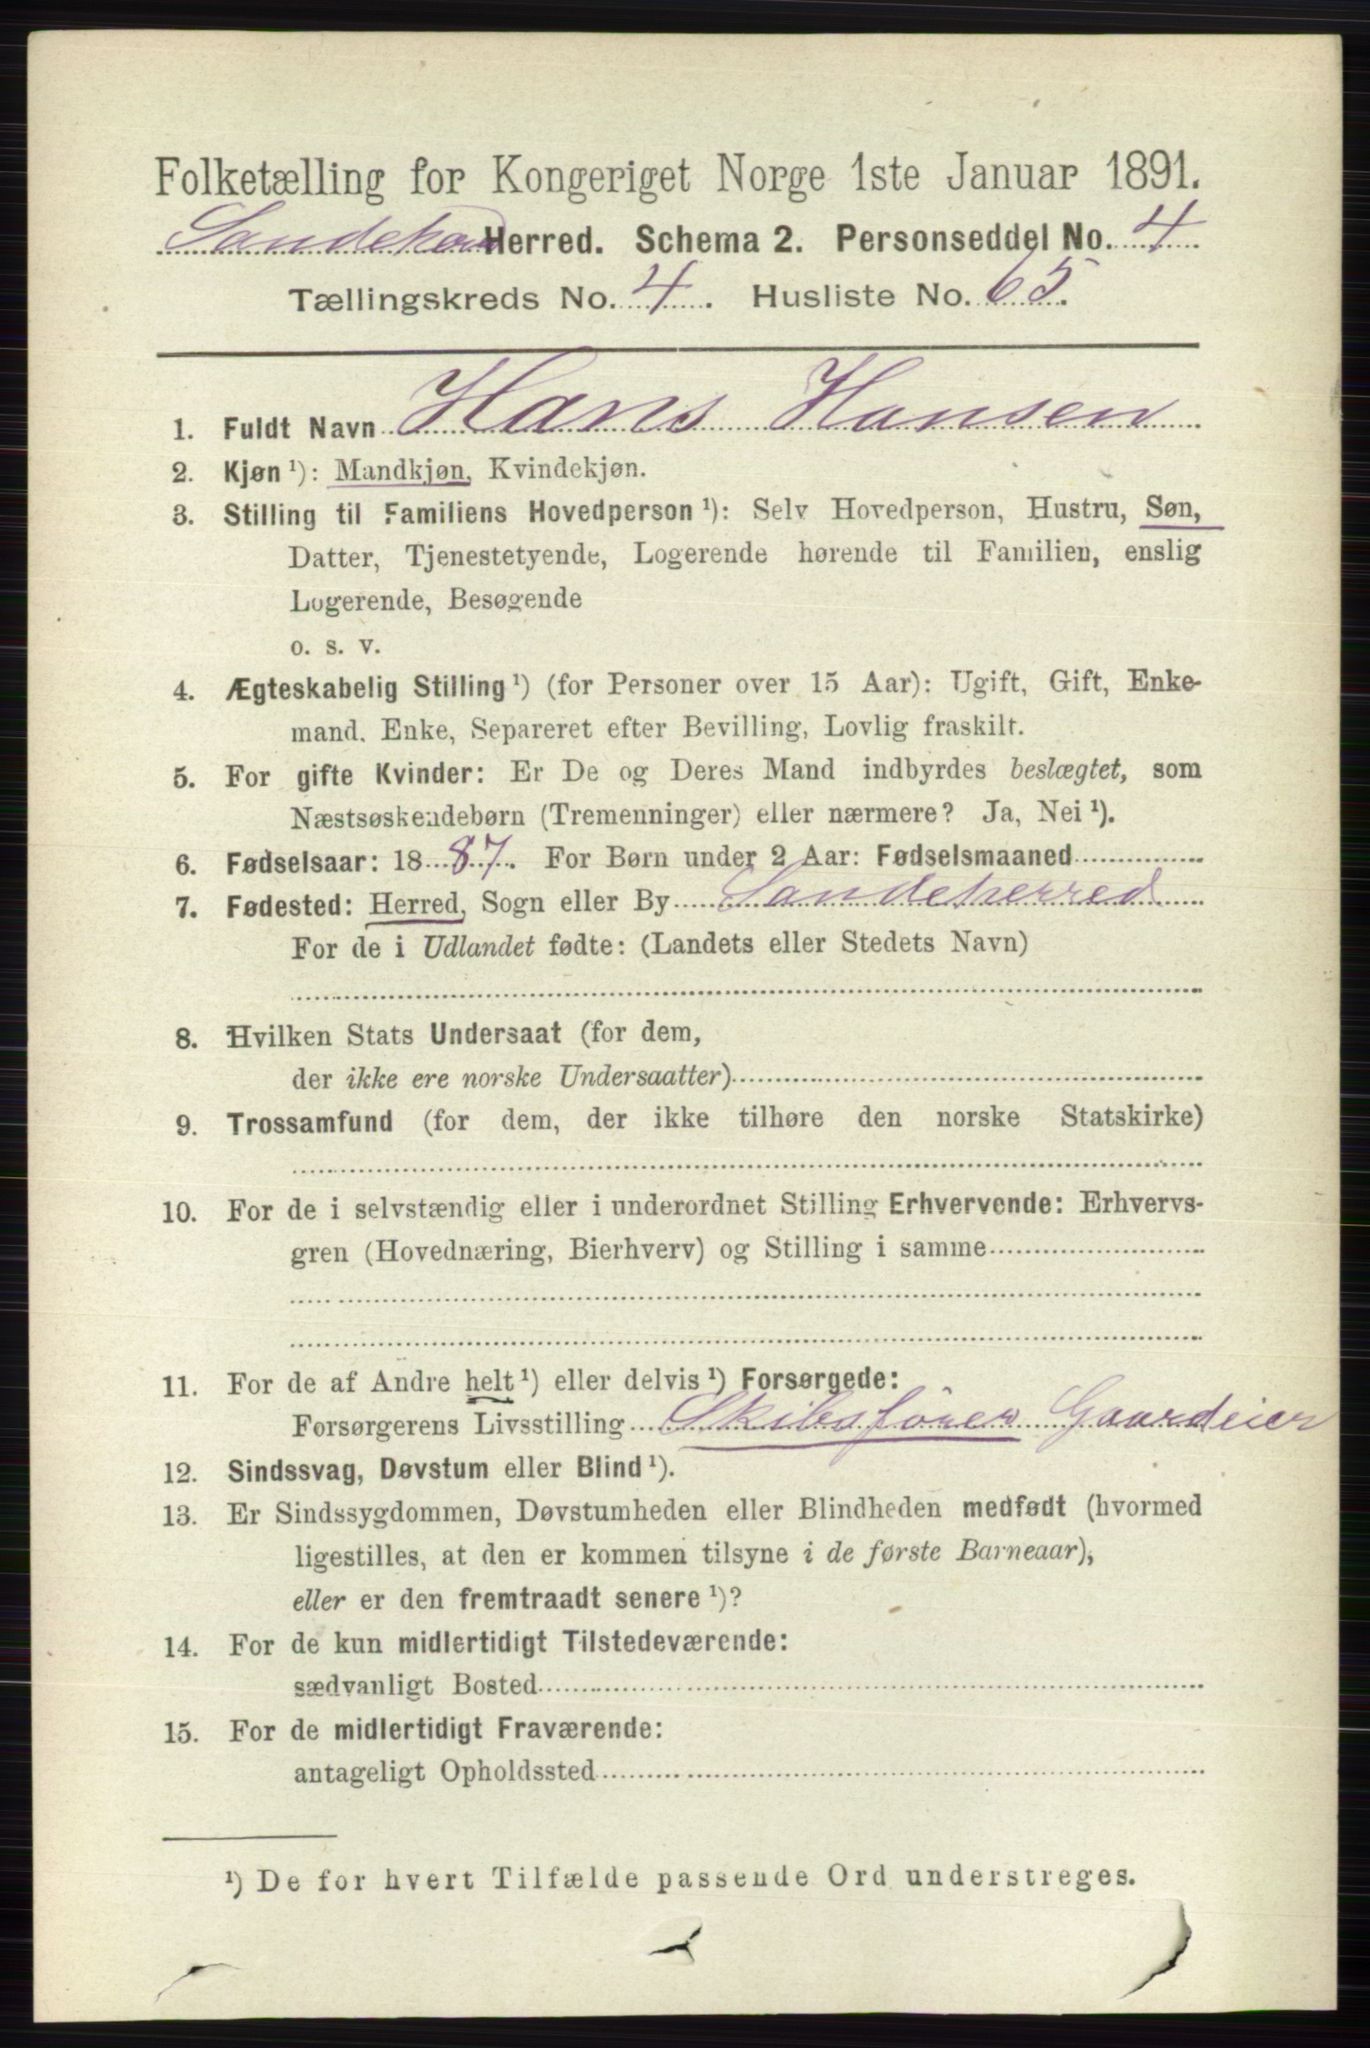 Folketælling for Kongeriget Norge 1ste Januar 1891.
Sandeherred Herred. Schema 2. Personseddel No. 4
Tællingskreds No. 4. Husliste No. 65.
1. Fuldt Navn Hans Hansen
2. Kjøn ¹): Mandkjøn, Kvindekjøn.
3. Stilling til Familiens Hovedperson ¹): Selv Hovedperson, Hustru, Søn,
Datter, Tjenestetyende, Logerende hørende til Familien, enslig
Logerende, Besøgende
o. s. v.
4. Ægteskabelig Stilling ¹) (for Personer over 15 Aar): Ugift, Gift, Enke-
mand, Enke, Separeret efter Bevilling, Lovlig fraskilt.
5. For gifte Kvinder: Er De og Deres Mand indbyrdes beslægtet, som
Næstsøskendebørn (Tremenninger) eller nærmere? Ja, Nei ¹).
6. Fødselsaar: 1887. For Børn under 2 Aar: Fødselsmaaned
7. Fødested: Herred, Sogn eller By Sandeherred
For de i Udlandet fødte: (Landets eller Stedets Navn)
8. Hvilken Stats Undersaat (for dem,
der ikke ere norske Undersaatter)
9. Trossamfund (for dem, der ikke tilhøre den norske Statskirke)
10. For de i selvstændig eller i underordnet Stilling Erhvervende: Erhvervs-
gren (Hovednæring, Bierhverv) og Stilling i samme
11. For de af Andre helt ¹) eller delvis ¹) Forsørgede:
Forsørgerens Livsstilling Skibsfører Gaardeier
12. Sindssvag, Døvstum eller Blind ¹).
13. Er Sindssygdommen, Døvstumheden eller Blindheden medfødt (hvormed
ligestilles, at den er kommen tilsyne i de første Barneaar),
eller er den fremtraadt senere ¹)?
14. For de kun midlertidigt Tilstedeværende:
sædvanligt Bosted
15. For de midlertidigt Fraværende:
antageligt Opholdssted
¹) De for hvert Tilfælde passende Ord understreges.